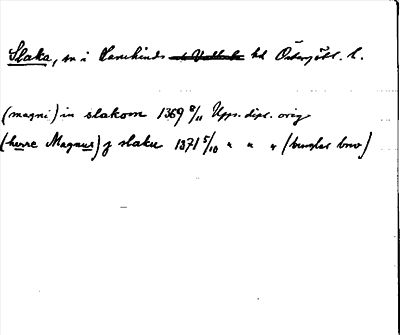 Slaka, sn i Hanekinds hd Östergötl. l.
(magni) in slakom 1369 8/11 Upps. dipl. orig
(herre Magnus) j slaku 1371 5/10 " " " (vunglar bmo)